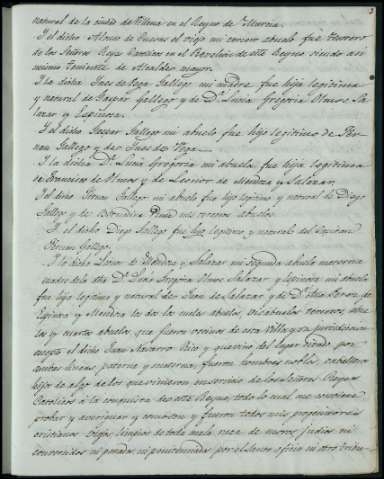 3
natural de la ciudad de Villena en el Reyno de Murcia.
Y el dicho Alonso de Guzman el viejo mi tercero abuelo fue thesorero
de los Señores Reyes Catolicos en el de este Reyno siendo asi
mismo teniente de Alcalde mayor.
Y la dicha Ines de Vega Gallego mi madre fue hija legitima
y natural de Gaspar Gallego y de D.ª Lucia Gregoria Olmos Sa
lazar y Espinosa.
Y el dicho Gaspar Gallego mi abuelo fue hijo legitimo de Her
nan Gallego y de Ines de Vega.
Y la dicha D.ª Lucia Gregoria mi abuela fue hija legitima
de Francisco de Olmos y de Leonor de Mendoza y Salazar.
Y el dicho Hernan Gallego mi abuelo fue hijo legitimo y natural de Diego
Gallego y de mis terceros abuelos.
Y el dicho Diego Gallego fue hijo legitimo y natural del Capitan
Hernan Gallego.
Y la dicha Leonor de Mendoza y Salazar mi segunda abuela materna
madre de la dha D.ª Lucia Gregoria Olmos Salazar y Espinosa mi abuela
fue hija legitima y natural de Juan de Salazar y de D.ª
y Mendoza los dos los mis abuelos, visabuelos terceros, abue
los y quartos abuelos que fueron vecinos de esta Villa y su jurisdicion
excepto el dicho Juan Navarro Rico y que vino del lugar dicho por
ambas lineas paterna y materna, fueron hombres nobles, cavalleros
hijos de algo de los que vinieron en servicio de los Señores Reyes
Catolicos á la conquista de este Reyno, todo lo cual me conviene
probar y averiguar y como son y fueron todos mis progenitores
cristianos viejos limpios de toda mala raza de moros, judios ni
convertidos ni penados ni penitenciados por el Santo oficio ni otro tribu-